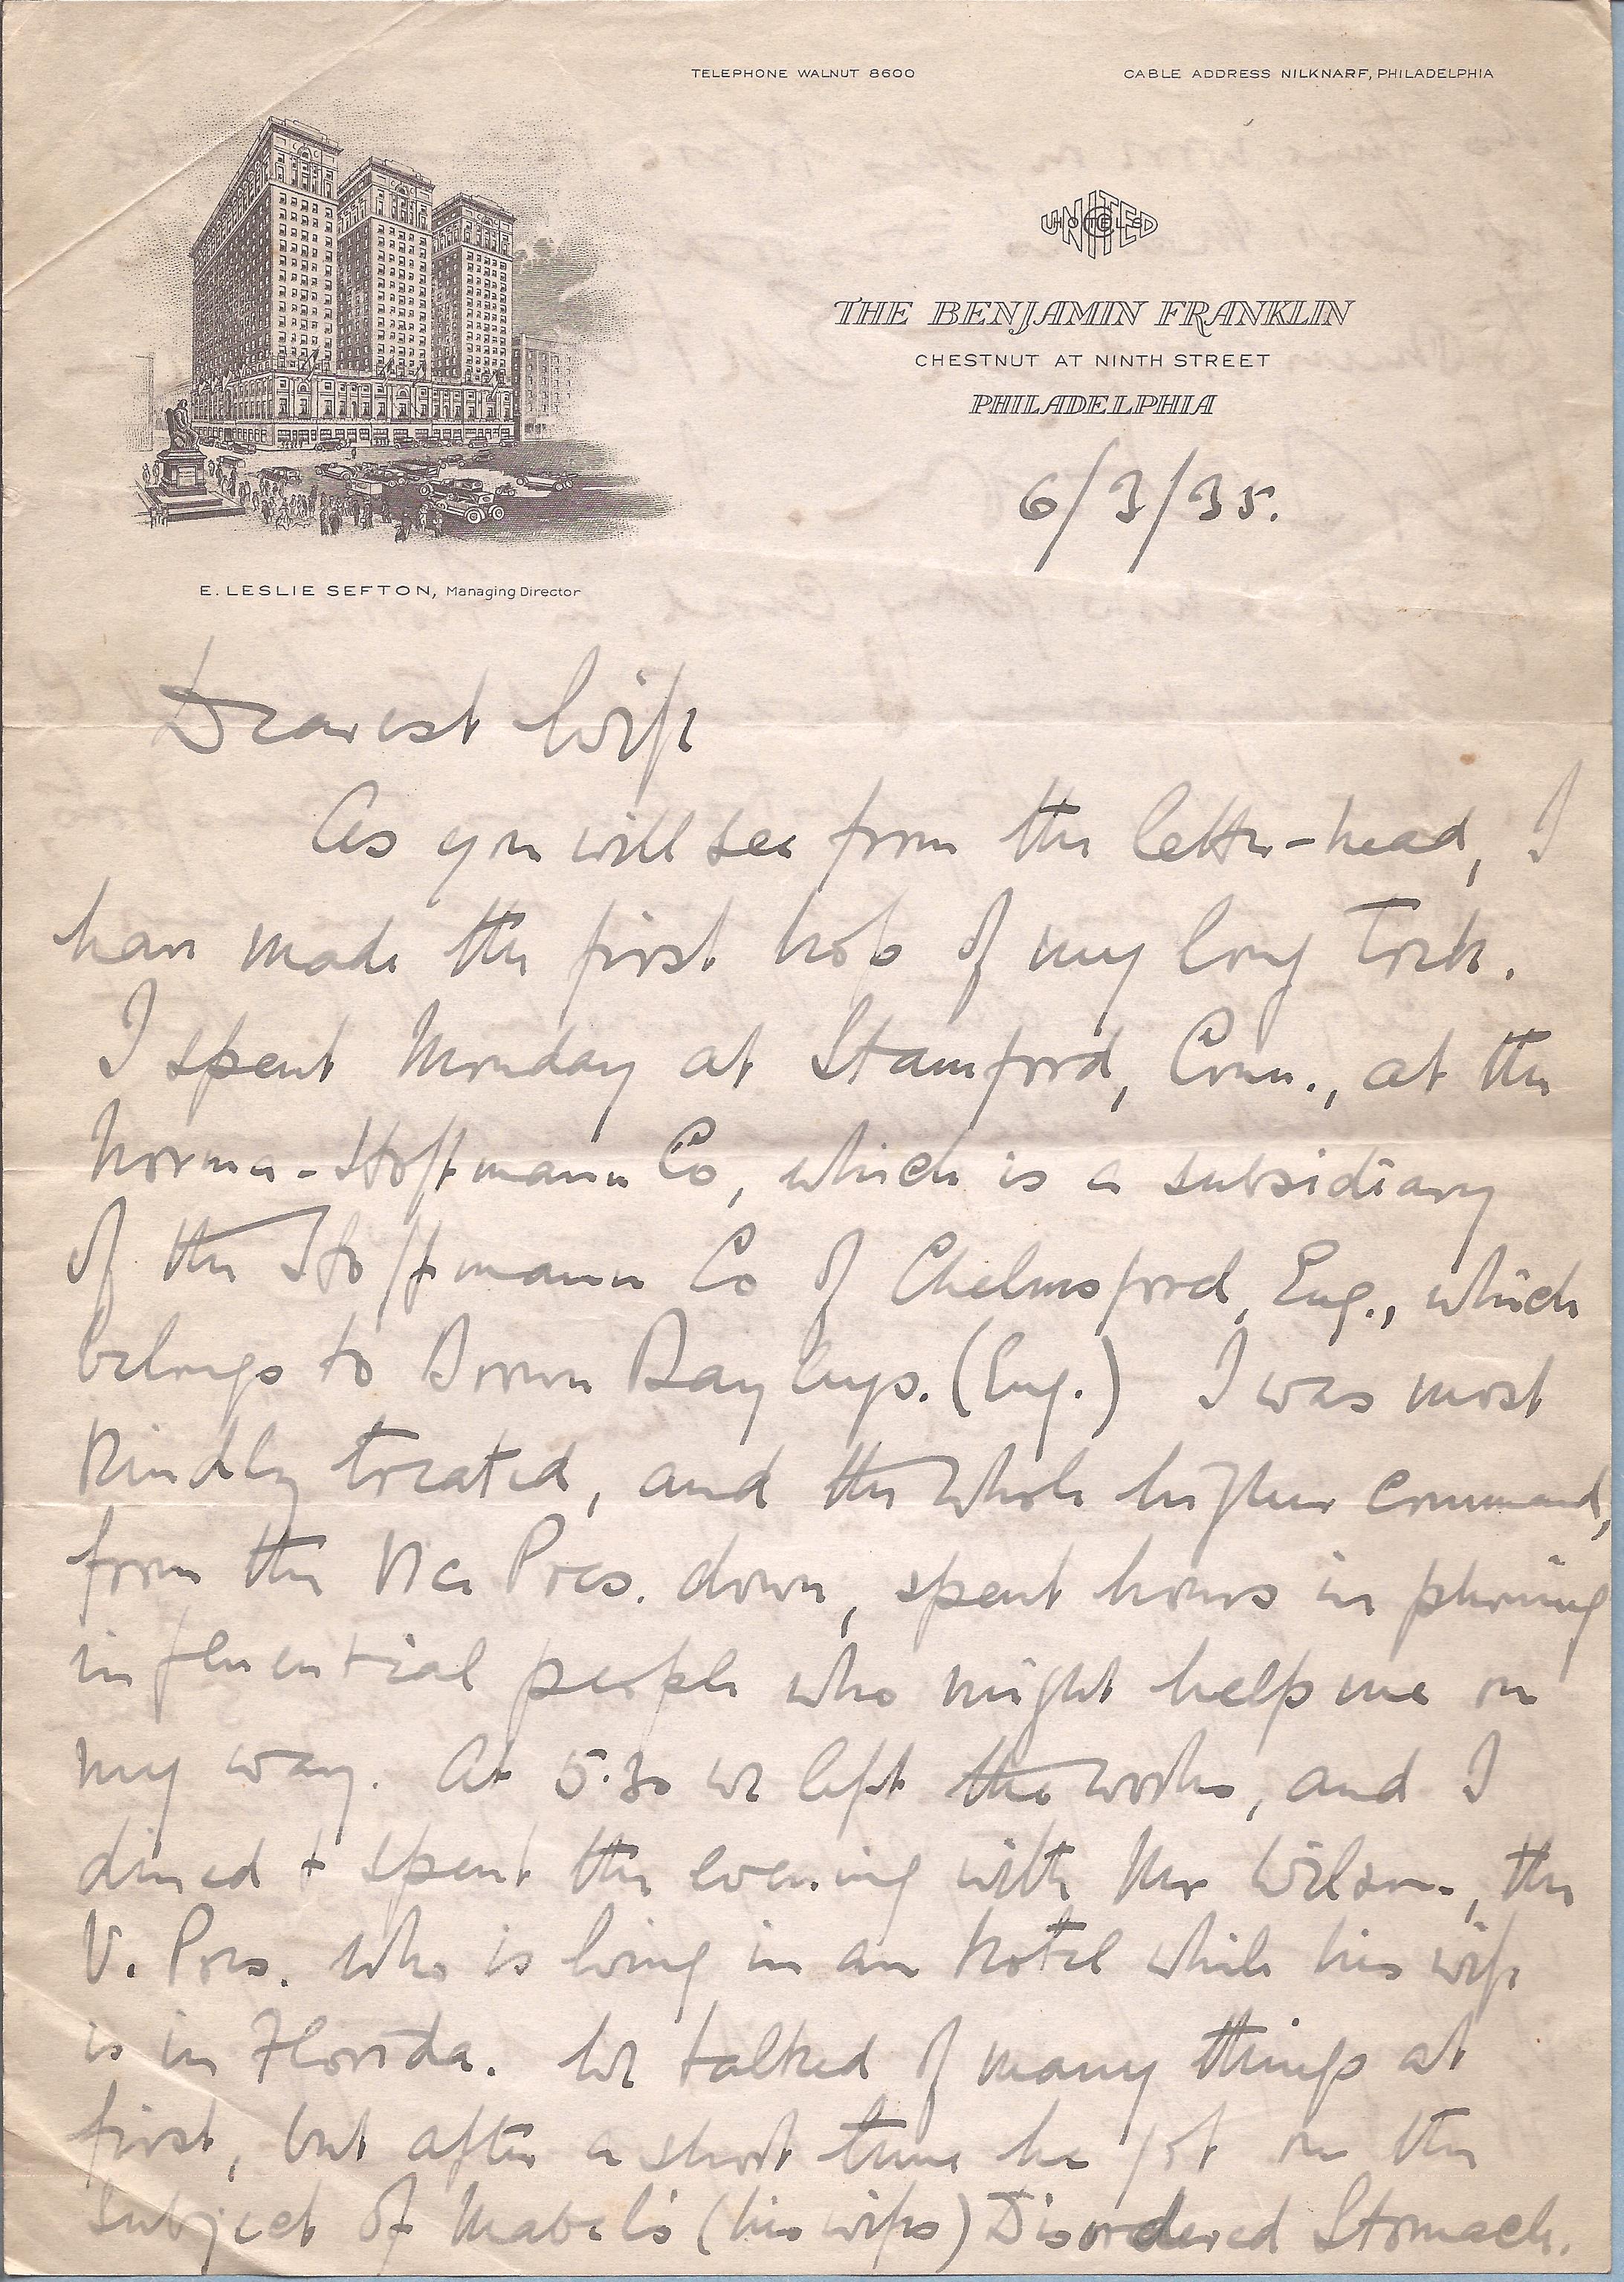 TELEPHONE WALNUT 8600
CABLE ADDRESS NILKNARF, PHILADELPHIA
UNITED HOTELS
THE BENJAMIN FRANKLIN
CHESTNUT AT NINTH STREET
PHILADELPHIA
6/3/35.
E. LESLIE SEFTON, Managing Director
Dearest Wife
As you will see from the letter-head, I
have made the first hop of my long trek.
I spent Monday at Stamford, Conn., at the
Norma-Hoffmann Co, which is a subsidiary
of the Hoffmann Co of Chelmsford, Eng., which
belongs to Brown Bayleys. (Eng.) I was most
kindly treated, and the whole higher command,
from the Vice Pres. down, spent hours in phoning
influential people who might help me on
my way. At 5.30 we left the works, and I
dined + spent the evening with Mr Wilson, the
V. Pres. who is living in an hotel while his wife
is in Florida. We talked of many things at
first, but after a short time he got on the
subject of Mabel's (his wife's) Disordered Stomach.